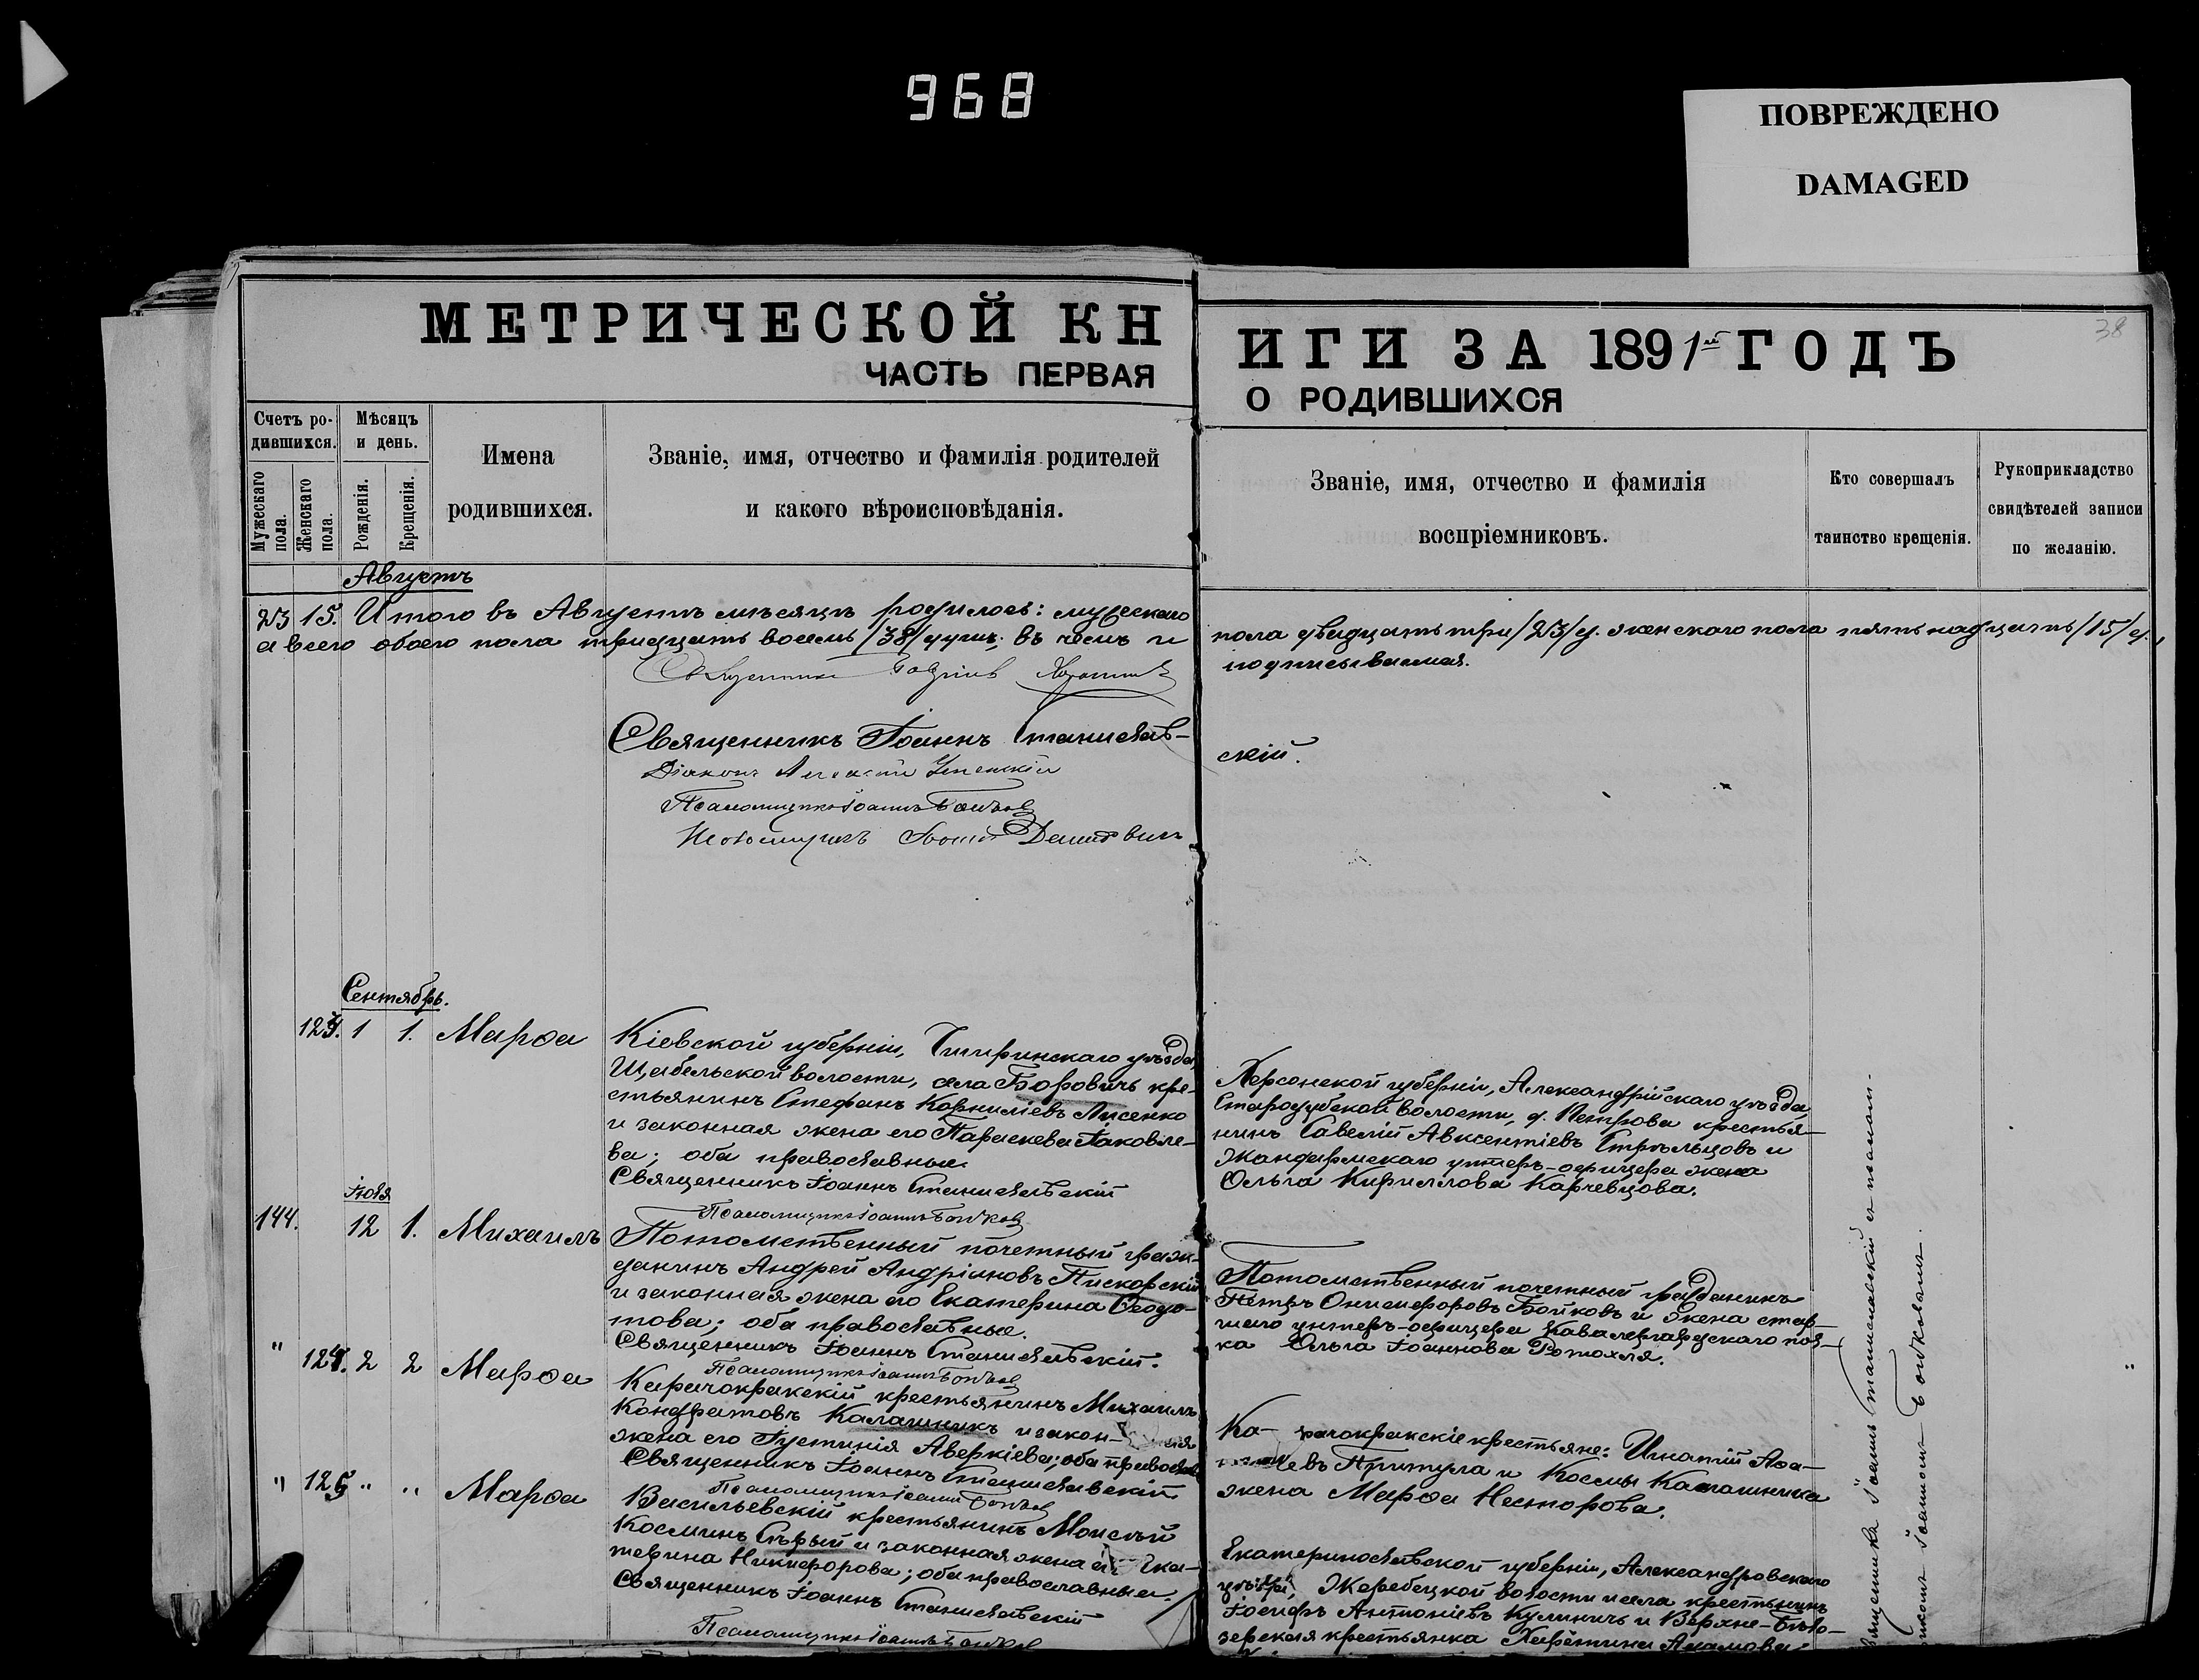 968
ПОВРЕЖДЕНО
DAMAGED
38
МЕТРИЧЕСКОЙ КН
ИГИ ЗА 1891й ГОДЪ
ЧАСТЬ ПЕРВАЯ
О РОДИВШИХСЯ
Счетъ ро-
дившихся.
Мужескаго
пола.
Женскаго
пола.
Мѣсяцъ
и день.
Рожденія.
Крещенія.
Имена
родившихся.
Званіе, имя, отчество и фамилія родителей
и какого вѣроисповѣданія.
Званіе, имя, отчество и фамилія
воспріемниковъ.
Кто совершалъ
таинство крещенія.
Рукоприкладство
свидѣтелей записи
по желанію.
Августъ
23 15. Итого въ Августѣ мѣсяцѣ родилось: мужескаго
пола двадцать три /23/ д. женскаго пола пятьнадцать /15/ д.,
а всего обоего пола тридцать восемь /38/ душъ; въ чемъ и
подписываемся.
Священникъ
Священникъ Іоаннъ Станиславъ-
скій.
Діаконъ Успенскій
Псаломщикъ Іоаннъ Бойков
Псаломщикъ
Сентябрь.
1 1. Марѳа
Кіевской губерніи, Чигиринскаго уѣзда,
Щабельской волости, села Боровичъ кре-
стьянинъ Стефанъ Корниліевъ Лисенко
и законная жена его Параскева Іаковле-
ва; оба православные.
Священникъ Іоаннъ Станиславскій
Псаломщикъ Іоаннъ Бойков
Херсонской губерніи, Александрійскаго уѣзда
Стародубской волости, д. Петрова крестья-
нинъ Савелій Авксентіевъ Стрѣльцовъ и
жандармскаго унтеръ-офицера жена
Ольга Кириллова Карчевцова.
Іюля
144. 12 1. Михаилъ
Потомственный почетный граж-
данинъ Андрей Андріановъ Пискорскій
и законная жена его Екатерина Ѳедо-
това; оба православные.
Священникъ Іоаннъ Станиславскій.
Псаломщикъ Іоаннъ Бойков
Потомственный почетный гражданинъ
Петръ Онисифоровъ Бойковъ и жена стар-
шаго унтеръ-офицера Кавалергардскаго пол-
ка Ольга Іоаннова Ротохля.
" 124. 2 2 Марѳа
Карачокракскій крестьянинъ Михаилъ
Кондратовъ Калашникъ и закон-
жена его Іустинія Аверкіева; оба православ
Священникъ Іоаннъ Станиславскій
Псаломщикъ Іоаннъ Бойков
Ка-рачокракскіе крестьяне: Игнатій
Притула и Космы Калашника
жена Марѳа Несторова.
" 125 " " Марѳа
Васильевскій крестьянинъ Моисей
Косминъ Сѣрый и законная жена его Ека-
терина Никифорова; оба православные.
Священникъ Іоаннъ Станиславскій
Псаломщикъ Іоаннъ Бойков
Екатеринославской губерніи, Александровскаго
уѣзда, Жеребецкой волости и села крестьянинъ
Іосифъ Антоніевъ Кулиничъ и Верхне-Бѣло-
зерская крестьянка Харитина Адамова
Священникъ Іоаннъ Станиславскій съ псалом-
щикомъ Іоанномъ Бойковымъ.